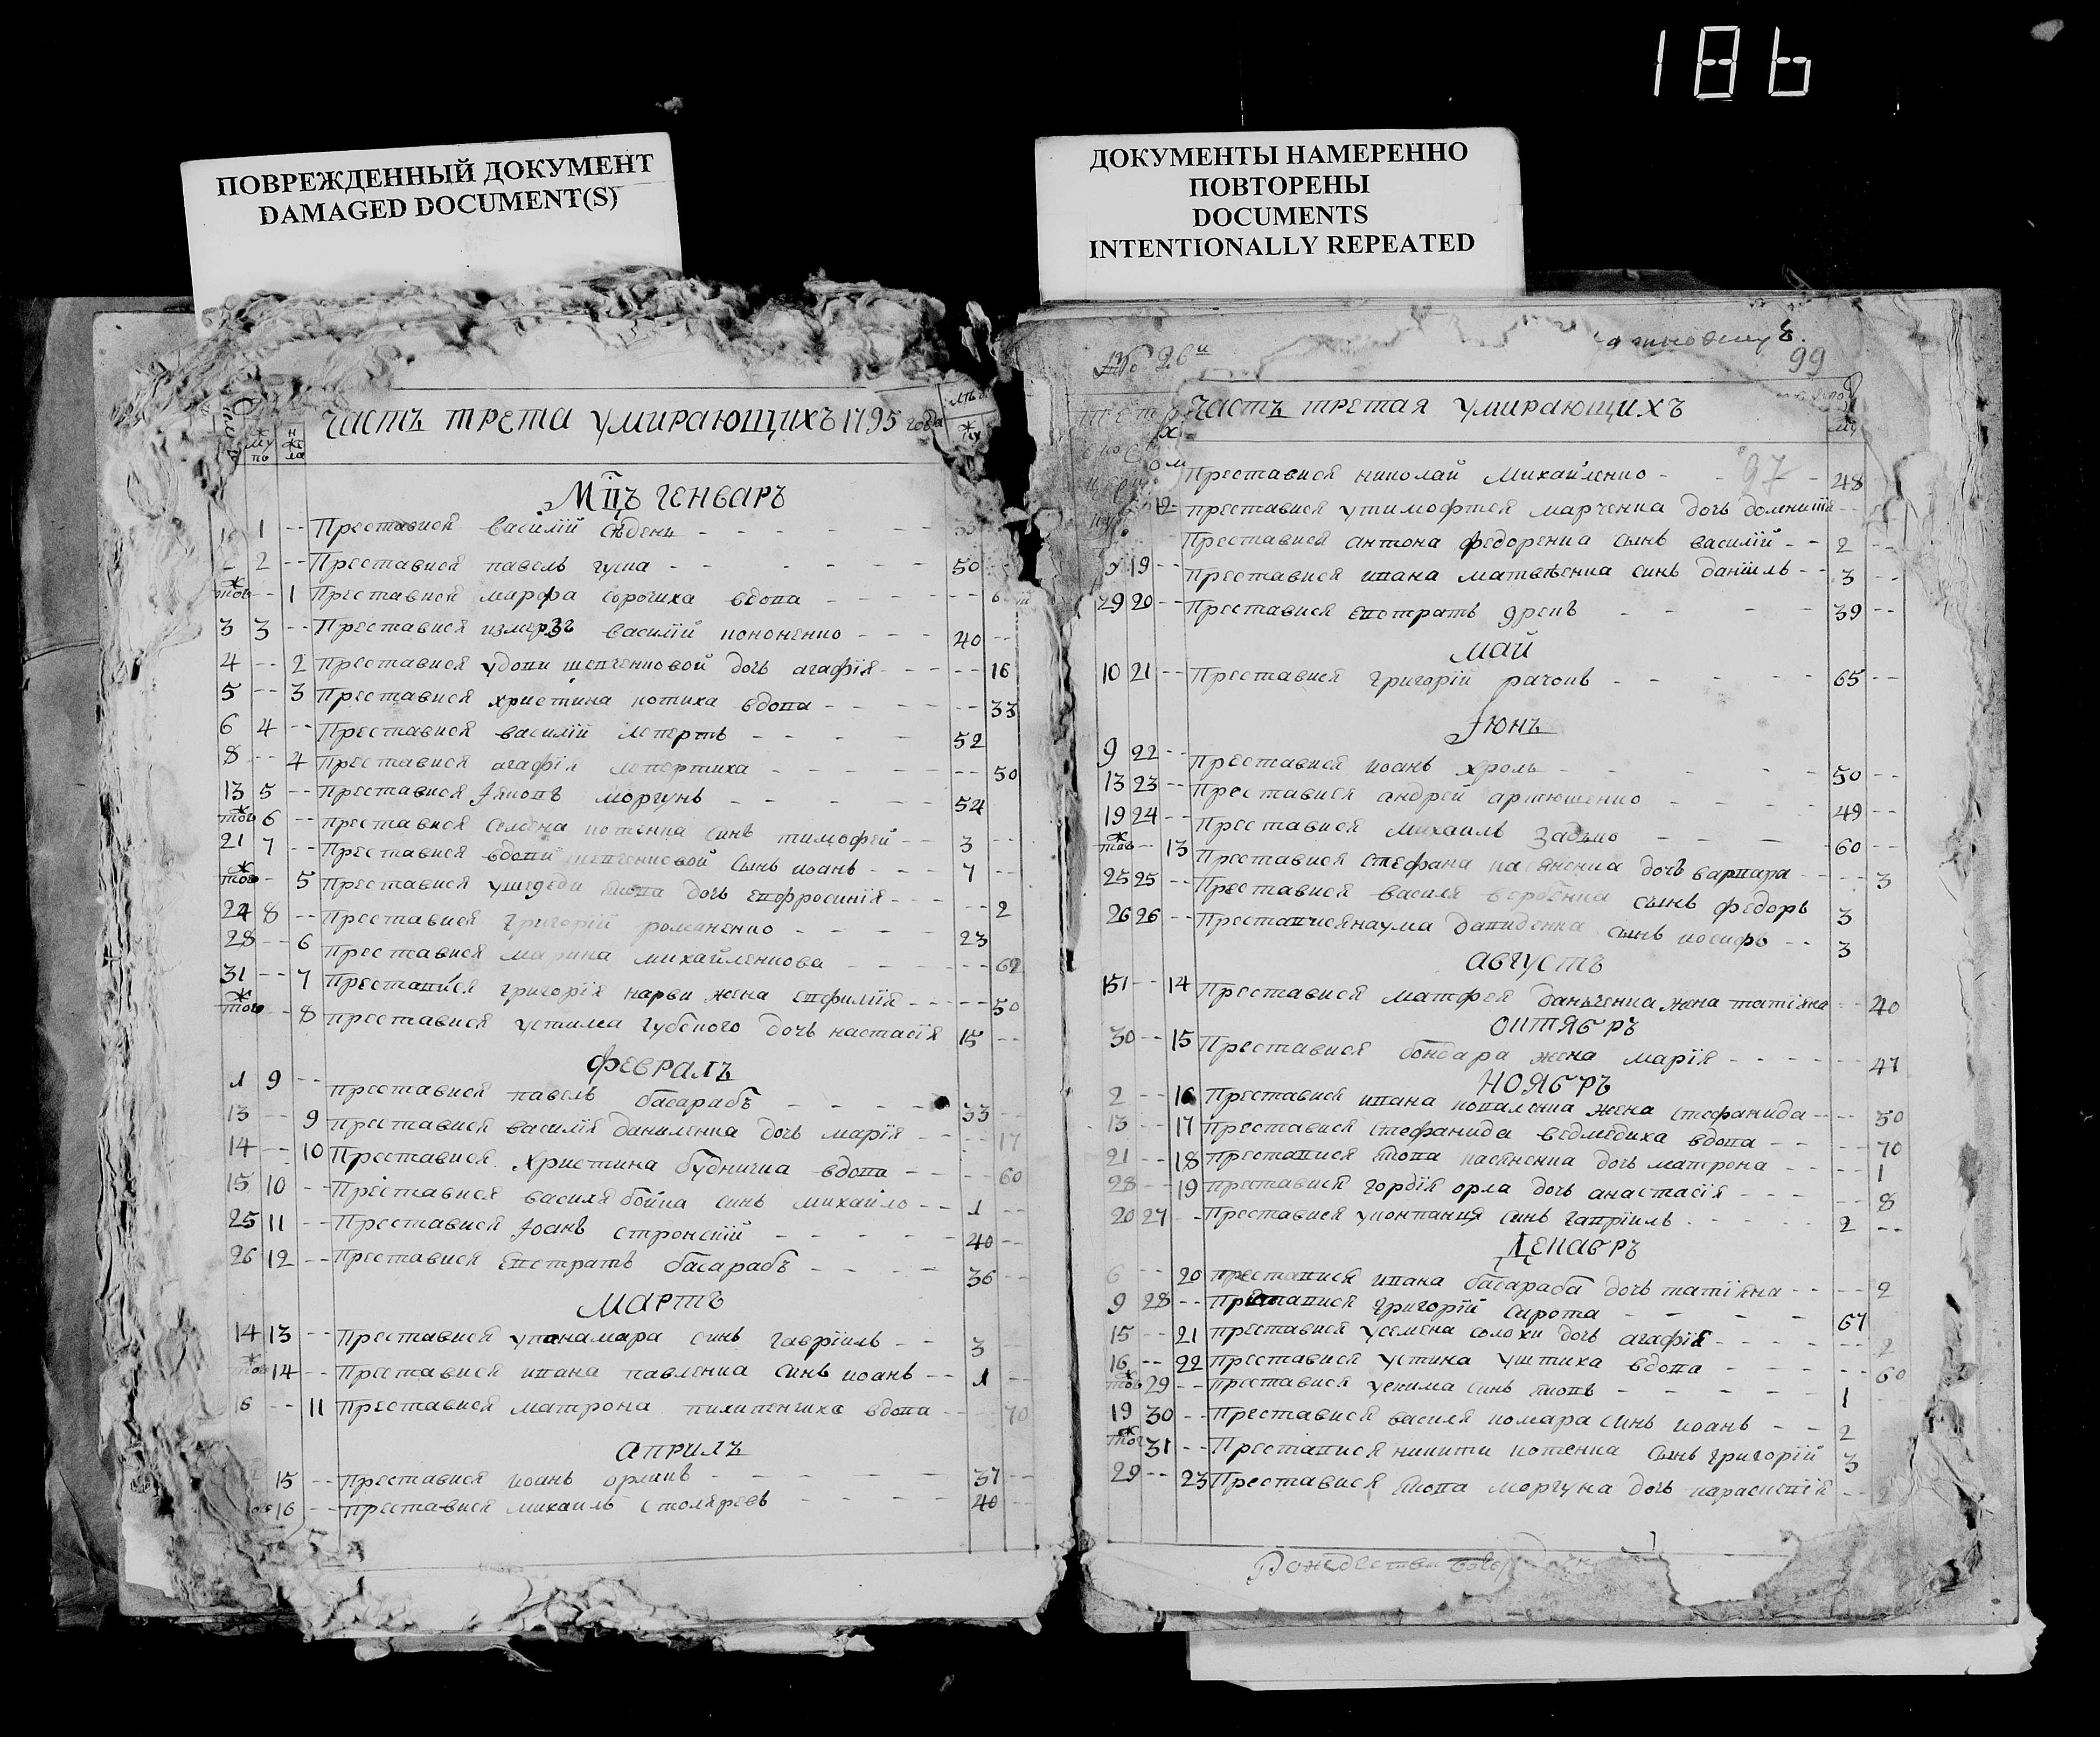 186
ПОВРЕЖДЕННЫЙ ДОКУМЕНТ
DAMAGED DOCUMENT(S)
ДОКУМЕНТЫ НАМЕРЕННО
ПОВТОРЕНЫ
DOCUMENTS
INTENTIONALLY REPEATED
Частъ трета умирающихъ 1795 года
Мцъ генваръ
1 -- Преставися василїй
2 -- Преставися павелъ гуша 50
тогож -- 1 Преставися марфа сорочиха вдова
3 3 -- Преставися измерзъ василїй кононенко 40 --
4 -- 2 Преставися удови шевченковой дочь агафїя -- 16
5 -- 3 Преставися христина котиха вдова -- 33
6 4 -- Преставися василїй леперть 52
8 -- 4 Преставися агафїя лепертиха -- 50
13 5 -- Преставися Яковъ моргунь 54
тогож 6 -- преставися семена котенка синь тимофей 3 --
21 7 -- Преставися вдови шевченковой сынь иоань 7 --
тогож -- 5 Преставися дочь евфросинїя -- 2
24 8 -- Преставися григорїй романенко 23
28 -- 6 Преставися марина михайленкова -- 62
31 -- 7 Преставися григорїя карви жена евфимїя -- 50
тогож -- 8 преставися устима губского дочь настасїя 15 --
февралъ
1 9 -- преставися павелъ басарабъ 33 --
13 -- 9 преставися василїя даниленка дочь марїя -- 17
14 -- 10 Преставися Христина будничка вдова -- 60
15 10 -- Преставися василя бойка синь михайло 1 --
25 11 -- Преставися Иоанъ стронскїй 40 --
26 12 -- Преставися Евстратъ басарабъ 36 --
мартъ
14 13 -- Преставися упанамара синь гаврїиль 3 --
тогож 14 -- Преставися ивана павленка синь иоань 1 --
16 -- 11 Преставися матрона пилипенчиха вдова -- 70
априлъ
15 -- Преставися иоань орликъ 37 --
16 -- Преставися михаилъ столяревъ 40 --
99
Частъ третая умирающихъ
97
Преставися николай михайленко 48
преставися утимофтея марченка дочь
Преставися антона федоренка сынь василїй 2 --
19 -- Преставися ивана матвѣенка синь данїиль 3 --
29 20 -- Преставися евстратъ 39 --
май
10 21 -- Преставися григорїй рачокъ 65 --
Июнъ
9 22 -- Преставися иоань хроль 50 --
13 23 -- Преставися андрей артюшенко 49 --
19 24 -- Преставися михаилъ 60 --
тогож -- 13 Преставися стефана касяненка дочь варвара -- 3
25 25 -- Преставися василя вербенка сынь федорь 3
26 26 -- Преставися наума давиденка сынь иосифъ 3
августъ
151 -- 14 Преставися матфея даньченка жена татїяна -- 40
октябръ
30 -- 15 Преставися бондара жена марїя -- 47
ноябръ
2 -- 16 Преставися ивана коваленка жена стефанида -- 50
13 -- 17 Преставися стефанида ведмедиха вдова -- 70
21 -- 18 Преставися якова касяненка дочь матрона -- 1
28 -- 19 преставися гордїя орла дочь анастасїя -- 8
20 27 -- Преставися синь гаврїиль 2 --
Декабръ
6 -- 20 преставися ивана басараба дочь татїяна -- 2
9 28 -- Преставися григорїй сирота 67
15 -- 21 преставися усемена солохи дочь агафїя -- 2
16 -- 22 преставися устина уштиха вдова -- 60
тогож 29 -- преставися уекима синь яковъ 1
19 30 -- Преставися василя комара синь иоань 2
тогож 31 -- Преставися никити котенка сынь григорїй 3
29 -- 23 Преставися якова моргуна дочь параскевїя -- 2